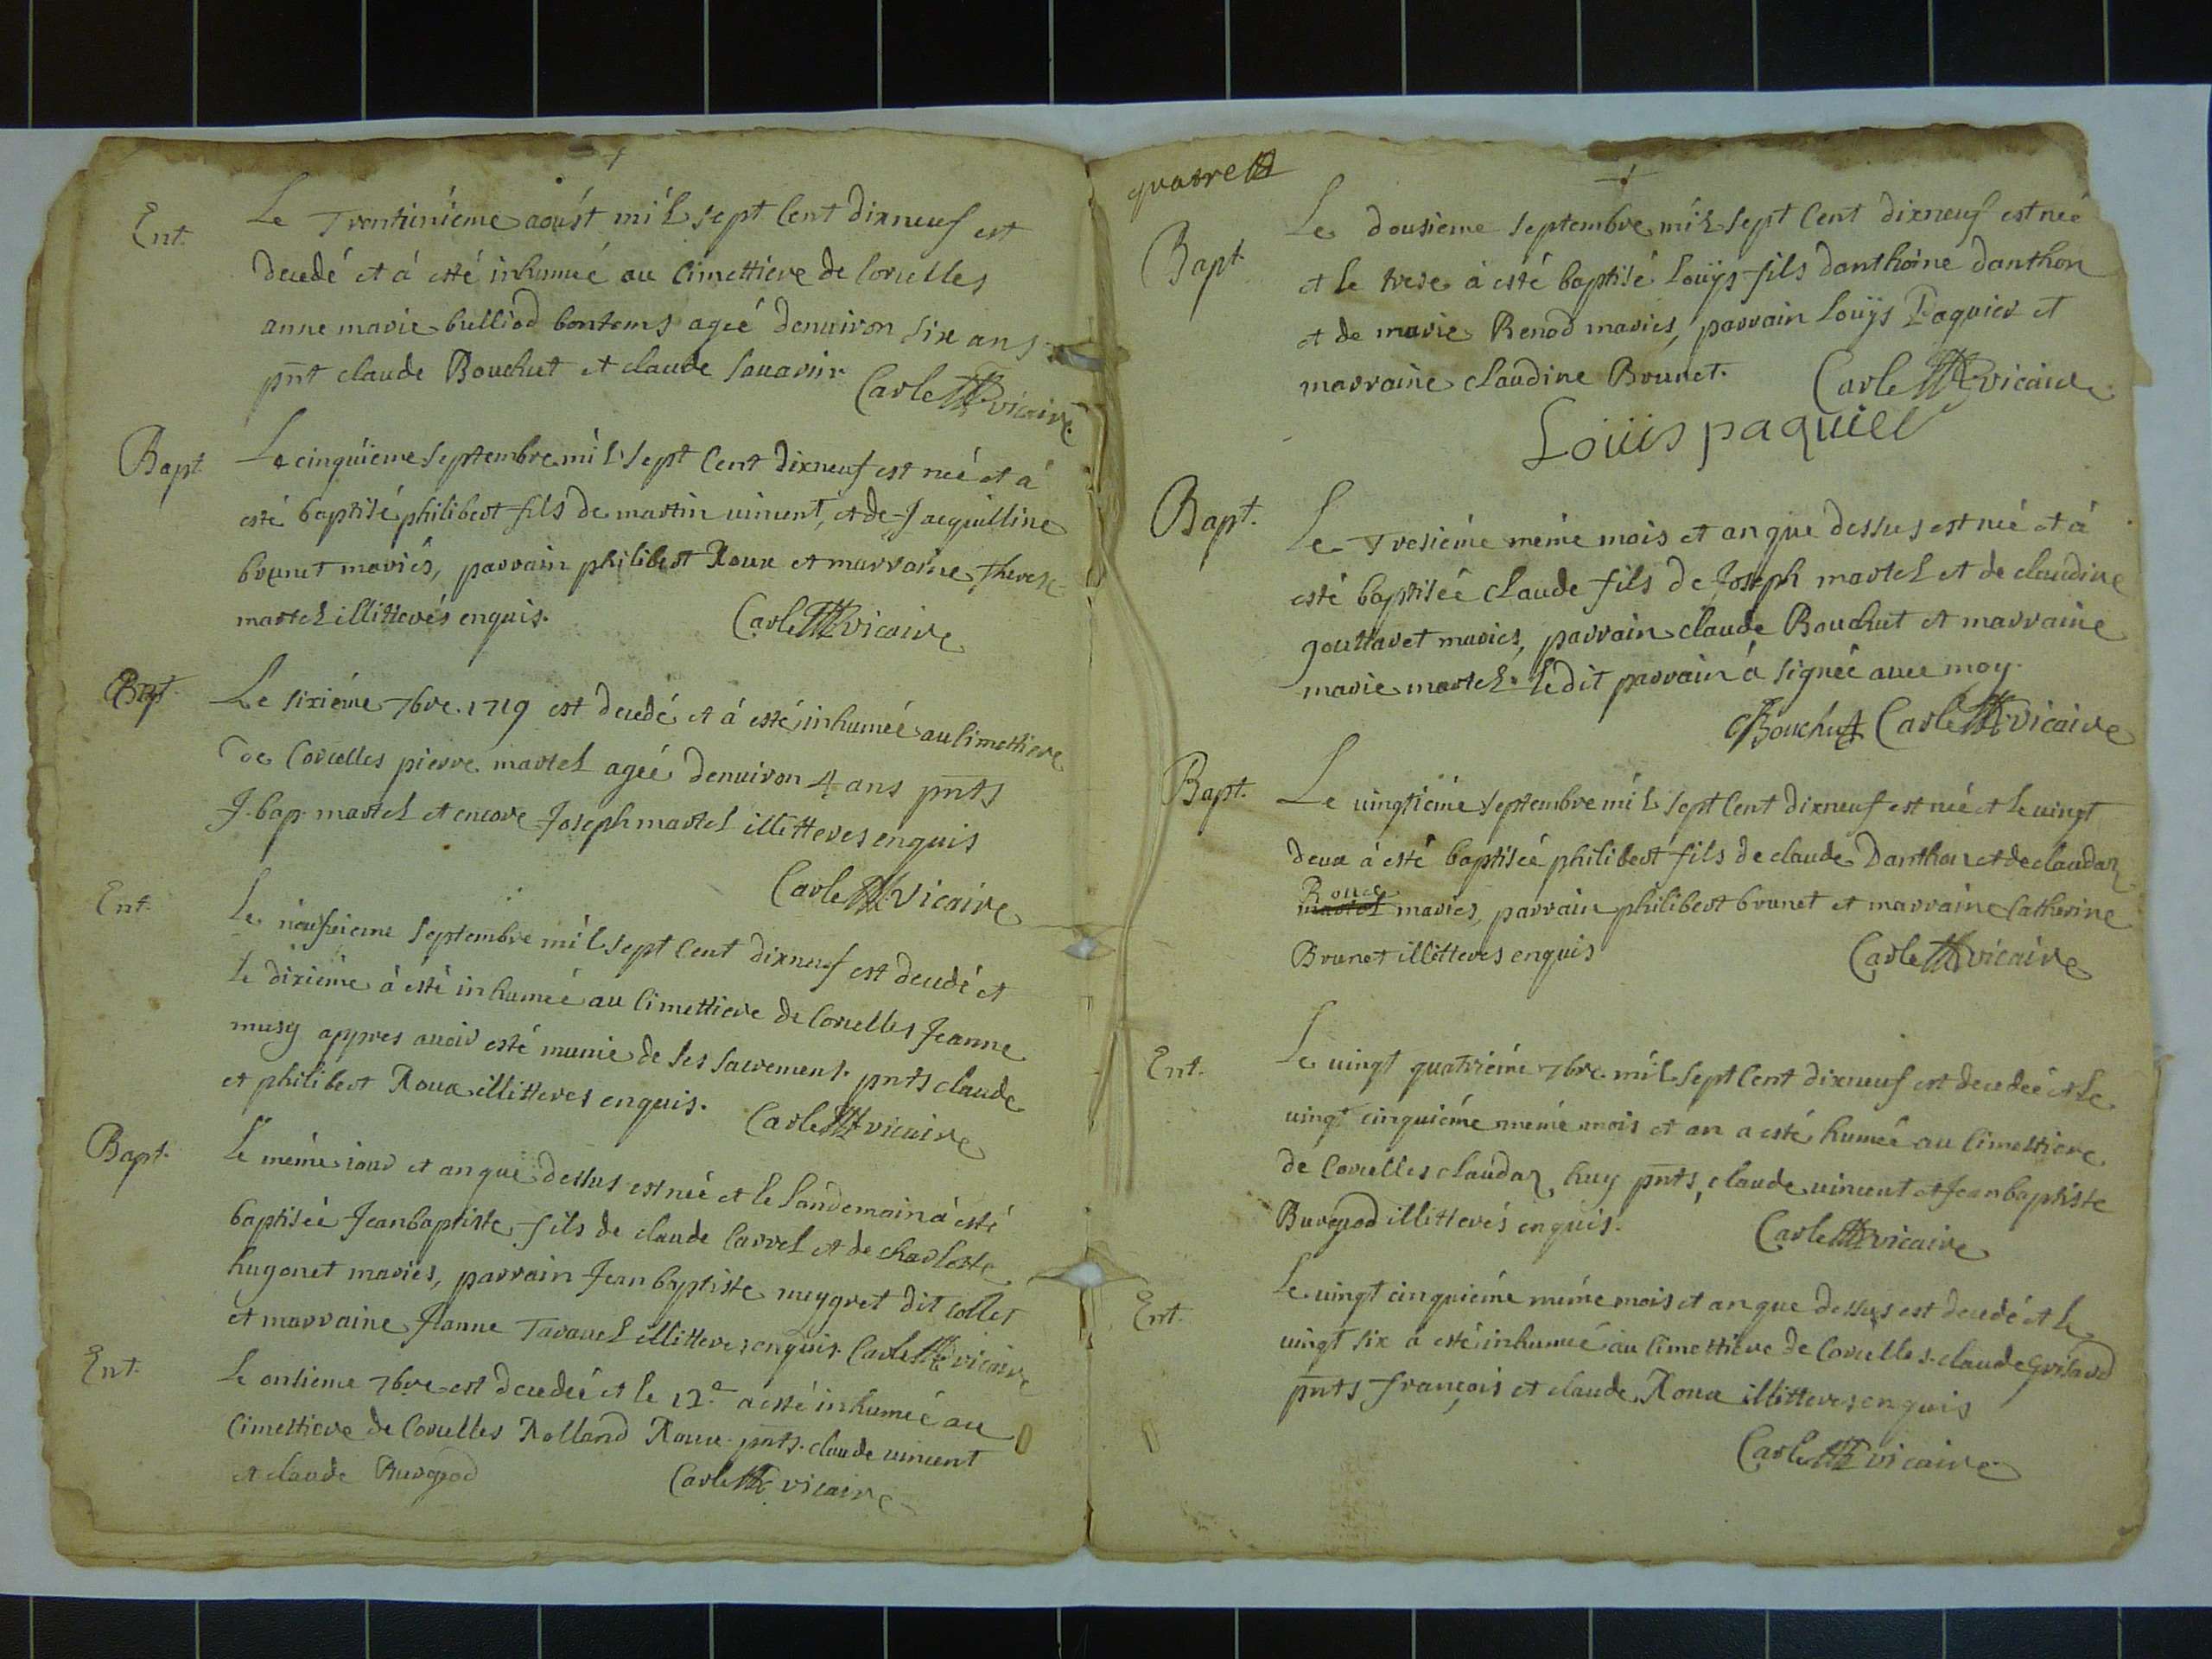 Ent.
Le Trentunieme aoust mil sept Cent dixneuf est
decedé et à esté inhumée au Cimettiere de Corcelles
anne marie bulliod bontems agée denuiron six ans
pnt claude Bouchut et claude sauarin
Carle vicaire
Bapt
Le cinquieme septembre mil sept Cent dixneuf est née et à
esté baptisé philibert fils de martin uincent, et de Jacquilline
brunet mariés, parrain philibert Roux et marraine Therese
martel illitterés enquis.
Carle vicaire
Le sixiéme 7bre. 1719 est decedé et à esté inhumée au Cimettiere
de Corcelles pierre martel agée denuiron 4 ans pnts
J. bap. martel et encore Joseph martel illitteres enquis
Carle vicaire
Ent.
Le neufuieme septembre mil sept Cent dixneuf est decedé et
le dixiéme à esté inhumée au Cimettiere de Corcelles Jeanne
musy appres auoir esté munie de ses sacrements. pnts claude
et philibert Roux illitteres enquis.
Carle vicaire
Bapt.
Le méme iour et an que dessus est née et le landemain à esté
baptisée Jean baptiste fils de claude Carrel et de charlotte
hugonet mariés, parrain Jean baptiste meygret dit collet
et marraine Jeanne Tarauel illitteres enquis. Carle vicaire
Ent.
Le onsieme 7bre est decedée et le 12.e a esté inhumée au
Cimettiere de Corcelles Rolland Roux. pnts. claude uincent
et claude Burgod
Carle vicaire
quatre
Bapt.
Le dousieme septembre mil sept Cent dixneuf est neé
et le trese à esté baptisé Louÿs fils danthoine danthon
et de marie Renod mariés, parrain Louÿs Paquier et
marraine claudine Brunet.
Carle vicaire
Louis paquier
Bapt.
Le Tresiéme méme mois et an que dessus est née et à
esté baptisée claude fils de Joseph martel et de claudine
gouttaret mariés, parrain claude Bouchut et marraine
marie martel. ledit parrain à signée auec moy.
Bouchut Carle vicaire
Bapt.
Le uingtiéme septembre mil sept Cent dixneuf est née et le uingt
deux à esté baptisée philibert fils de claude Danthon et de claudaz
Roux
martel mariés, parrain philibert brunet et marraine Catherine
Brunet illitteres enquis
Carle vicaire
Ent.
Le uingt quatriéme 7bre. mil sept Cent dixneuf est decedée et le
uingt cinquiéme méme mois et an a esté humée au Cimettiere
de Corcelles claudaz huy pnts, claude uincent et Jean baptiste
Burgod illitterés enquis.
Carle vicaire
Ent.
Le uingt cinquiéme méme mois et an que dessus est decedé et le
uingt six à esté inhumée au Cimettiere de Corcelles. claude Grisard
pnts françois et claude Roux illitteres enquis
Carle vicaire